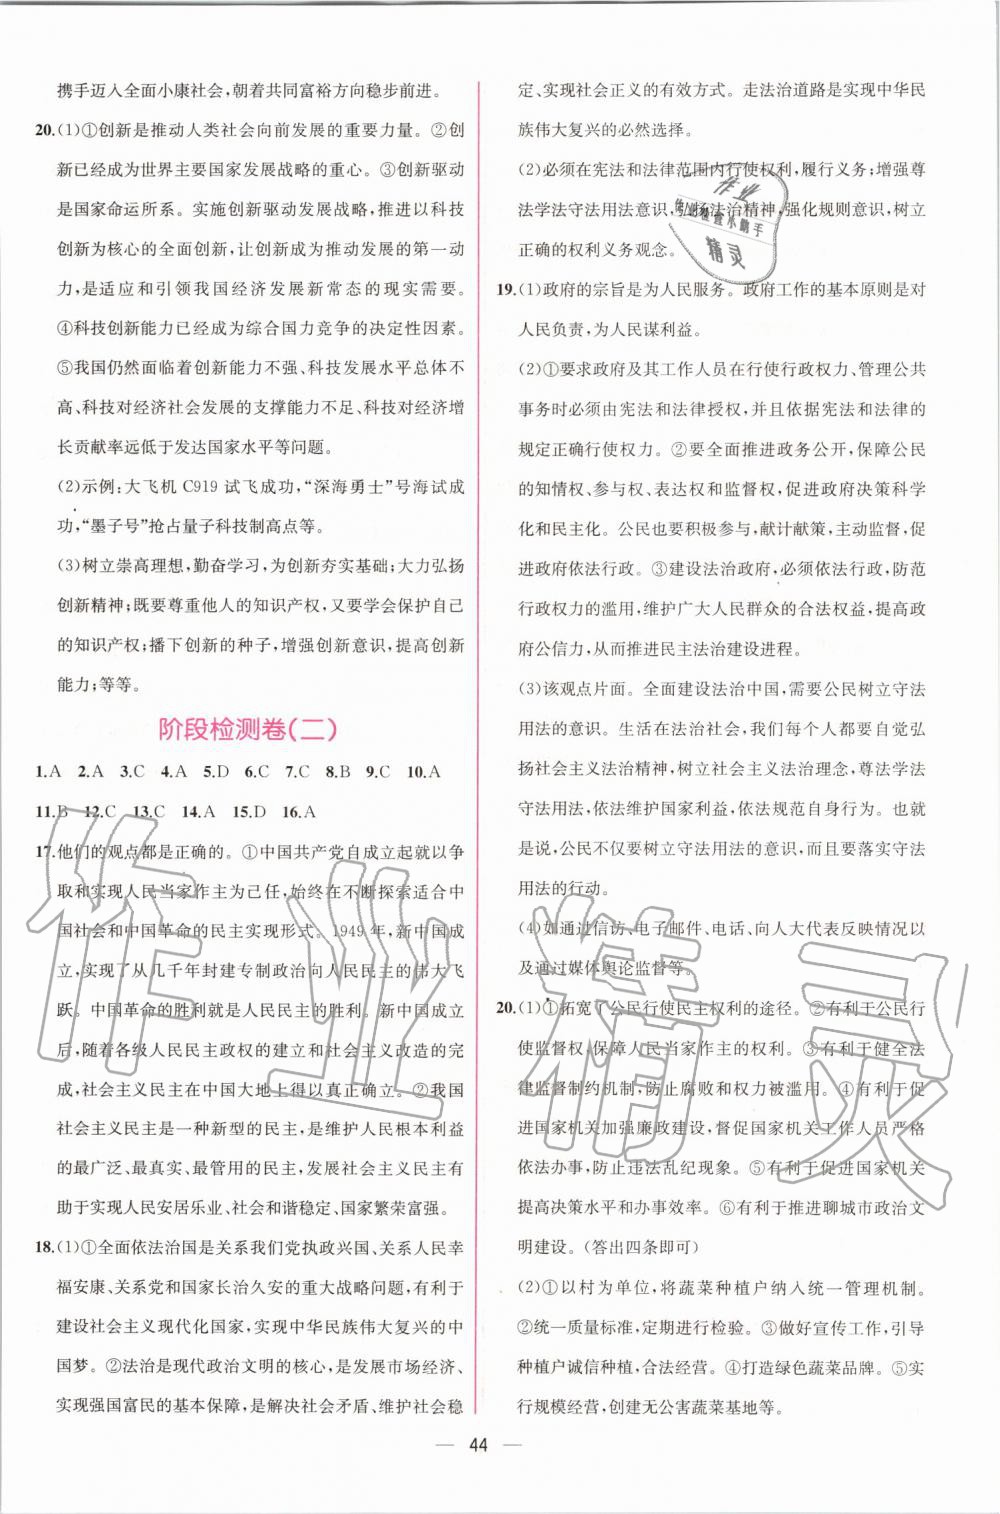 携手迈入全面小康社会,朝着共同富裕方向稳步前进。
20.(1)①创新是推动人类社会向前发展的重要力量。②创
新已经成为世界主要国家发展战略的重心。③创新驱动
是国家命运所系。实施创新驱动发展战略,推进以科技
创新为核心的全面创新,让创新成为推动发展的第一动
力,是适应和引领我国经济发展新常态的现实需要。
④科技创新能力已经成为综合国力竞争的决定性因素。
⑤我国仍然面临着创新能力不强、科技发展水平总体不
高、科技对经济社会发展的支撑能力不足、科技对经济增
长贡献率远低于发达国家水平等问题。
(2)示例:大飞机 C919 试飞成功,“深海勇士”号海试成
功,“墨子号”抢占量子科技制高点等。
(3)树立崇高理想,勤奋学习,为创新夯实基础;大力弘扬
创新精神;既要尊重他人的知识产权,又要学会保护自己
的知识产权;播下创新的种子,增强创新意识,提高创新
能力;等等。
阶段检测卷(二)
1.A 2.A 3.C 4.A 5.D 6.C 7.C 8.B 9.C 10.A
11.B 12.C 13.C 14.A 15.D 16.A
17.他们的观点都是正确的。①中国共产党自成立起就以争
取和实现人民当家作主为己任,始终在不断探索适合中
国社会和中国革命的民主实现形式。1949年,新中国成
立,实现了从几千年封建专制政治向人民民主的伟大飞
跃。中国革命的胜利就是人民民主的胜利。新中国成立
后,随着各级人民民主政权的建立和社会主义改造的完
成,社会主义民主在中国大地上得以真正确立。②我国
社会主义民主是一种新型的民主,是维护人民根本利益
的最广泛、最真实、最管用的民主,发展社会主义民主有
助于实现人民安居乐业、社会和谐稳定、国家繁荣富强。
18.(1)①全面依法治国是关系我们党执政兴国、关系人民幸
福安康、关系党和国家长治久安的重大战略问题,有利于
建设社会主义现代化国家,实现中华民族伟大复兴的中
国梦。②法治是现代政治文明的核心,是发展市场经济、
实现强国富民的基本保障,是解决社会矛盾、维护社会稳
定、实现社会正义的有效方式。走法治道路是实现中华民
族伟大复兴的必然选择。
(2)必须在宪法和法律范围内行使权利,履行义务;增强尊
学法守法用法意识,弘扬法治精神,强化规则意识,树立
正确的权利义务观念。
19.(1)政府的宗旨是为人民服务。政府工作的基本原则是对
人民负责,为人民谋利益。
(2)①要求政府及其工作人员在行使行政权力、管理公共
事务时必须由宪法和法律授权,并且依据宪法和法律的
规定正确行使权力。②要全面推进政务公开,保障公民
的知情权、参与权、表达权和监督权,促进政府决策科学
化和民主化。公民也要积极参与,献计献策,主动监督,促
进政府依法行政。③建设法治政府,必须依法行政,防范
行政权力的滥用,维护广大人民群众的合法权益,提高政
府公信力,从而推进民主法治建设进程。
(3)该观点片面。全面建设法治中国,需要公民树立守法
用法的意识。生活在法治社会,我们每个人都要自觉弘
扬社会主义法治精神,树立社会主义法治理念,尊法学法
守法用法,依法维护国家利益,依法规范自身行为。也就
是说,公民不仅要树立守法用法的意识,而且要落实守法
用法的行动。
(4)如通过信访、电子邮件、电话、向人大代表反映情况以
及通过媒体舆论监督等。
20.(1)①拓宽了公民行使民主权利的途径。②有利于公民行
使监督权,保障人民当家作主的权利。③有利于健全法
律监督制约机制,防止腐败和权力被滥用。④有利于促
进国家机关加强廉政建设,督促国家机关工作人员严格
依法办事,防止违法乱纪现象。⑤有利于促进国家机关
提高决策水平和办事效率。⑥有利于推进聊城市政治文
明建设。(答出四条即可)
(2)①以村为单位,将蔬菜种植户纳入统一管理机制。
②统一质量标准,定期进行检验。③做好宣传工作,引导
种植户诚信种植,合法经营。④打造绿色蔬菜品牌。⑤实
行规模经营,创建无公害蔬菜基地等。
— 44 —
作业精灵
作业
精灵